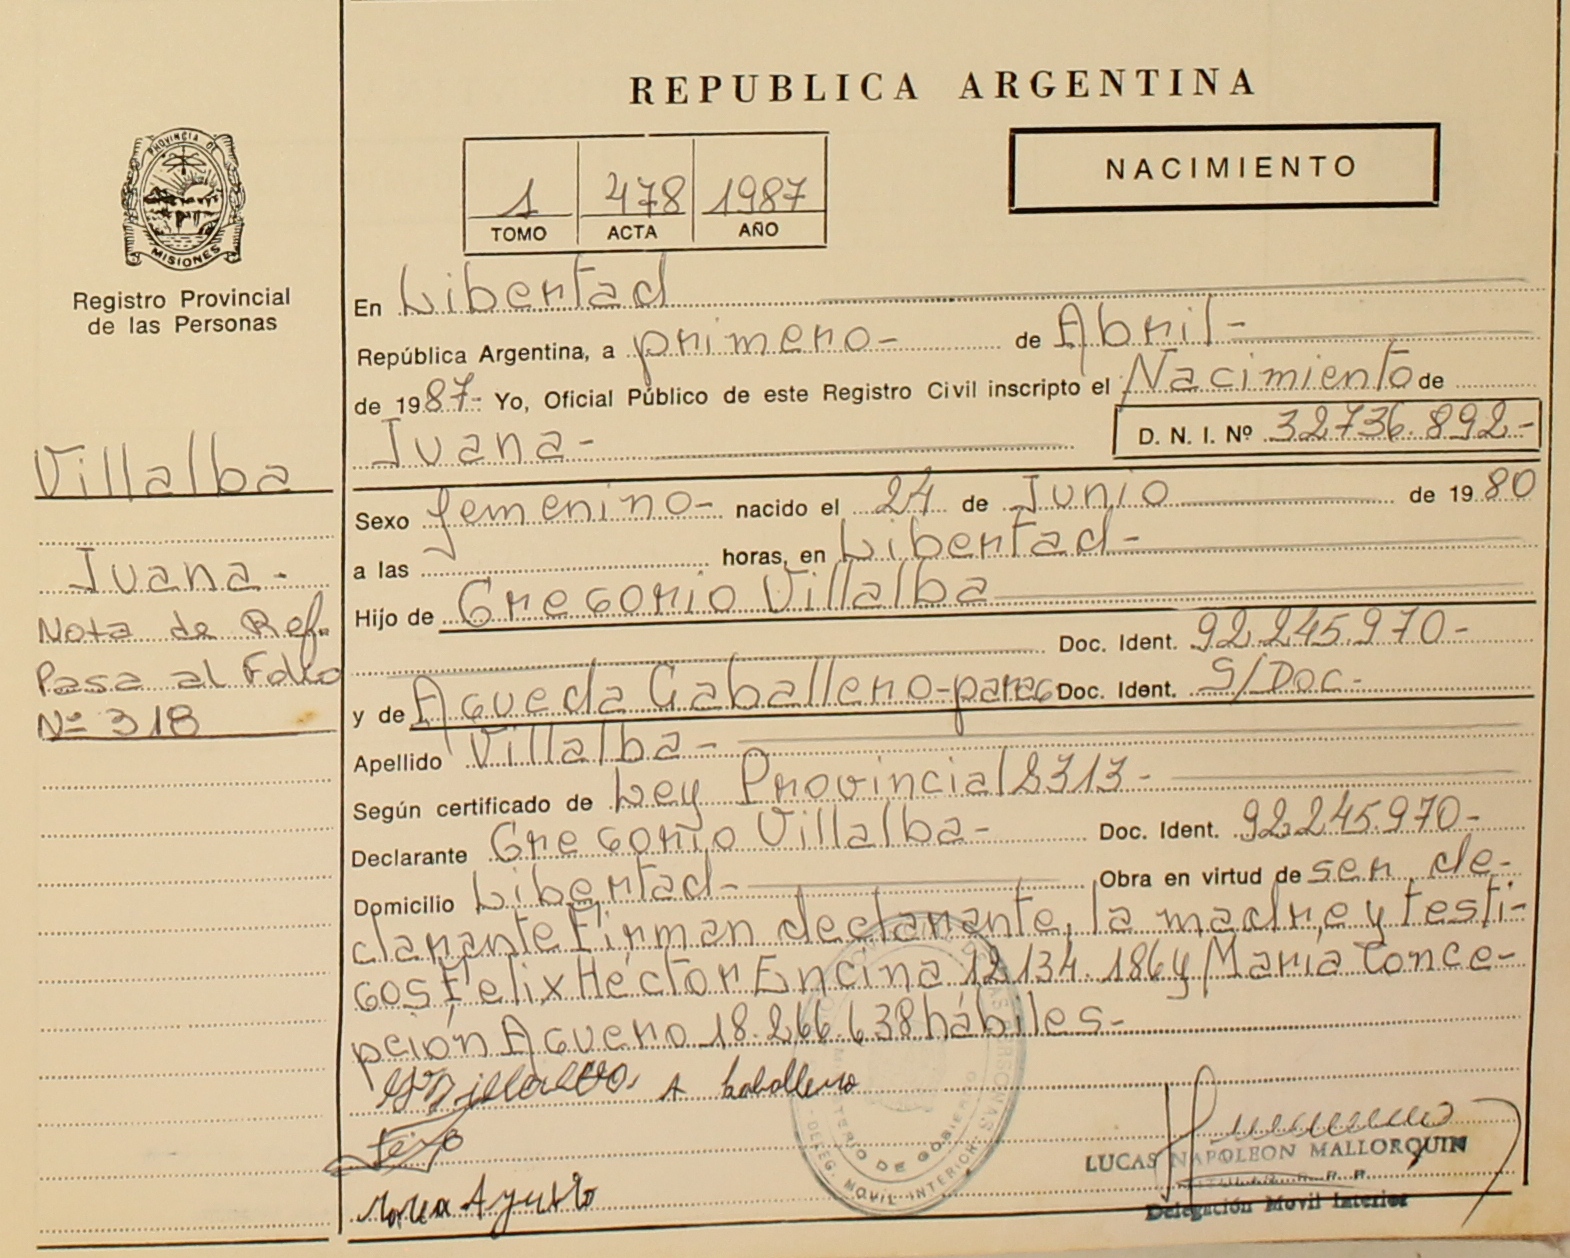 REPUBLICA ARGENTINA
PROVINCIA DE
MISIONES
Registro Provincial
de las Personas
1 478 1987
TOMO ACTA AÑO
NACIMIENTO
En Libertad
República Argentina, a primero- de Abril-
de 1987- Yo, Oficial Público de este Registro Civil inscripto el Nacimiento de
Juana- D. N. I. Nº 32736.892-
Villalba
Juana-
Nota de Ref.
Pasa al Folio
Nº 318
Sexo femenino- nacido el 24 de Junio de 1980
a las horas, en Libertad-
Hijo de Gregorio Villalba
Doc. Ident. 92.245.970-
y de Agueda Caballero-parag Doc. Ident. S/Doc-
Apellido Villalba-
Según certificado de Ley Provincial 2313-
Declarante Gregorio Villalba- Doc. Ident. 92.245.970-
Domicilio Libertad- Obra en virtud de ser de-
clarante Firman declarante, la madre y testi-
gos Felix Héctor Encina 12.134.186 y María Conce-
pción Aguero 18.266.638 hábiles-
A Caballero
LUCAS NAPOLEON MALLORQUIN
Delegación Movil Interior
DELEG. MOVIL INTERIOR